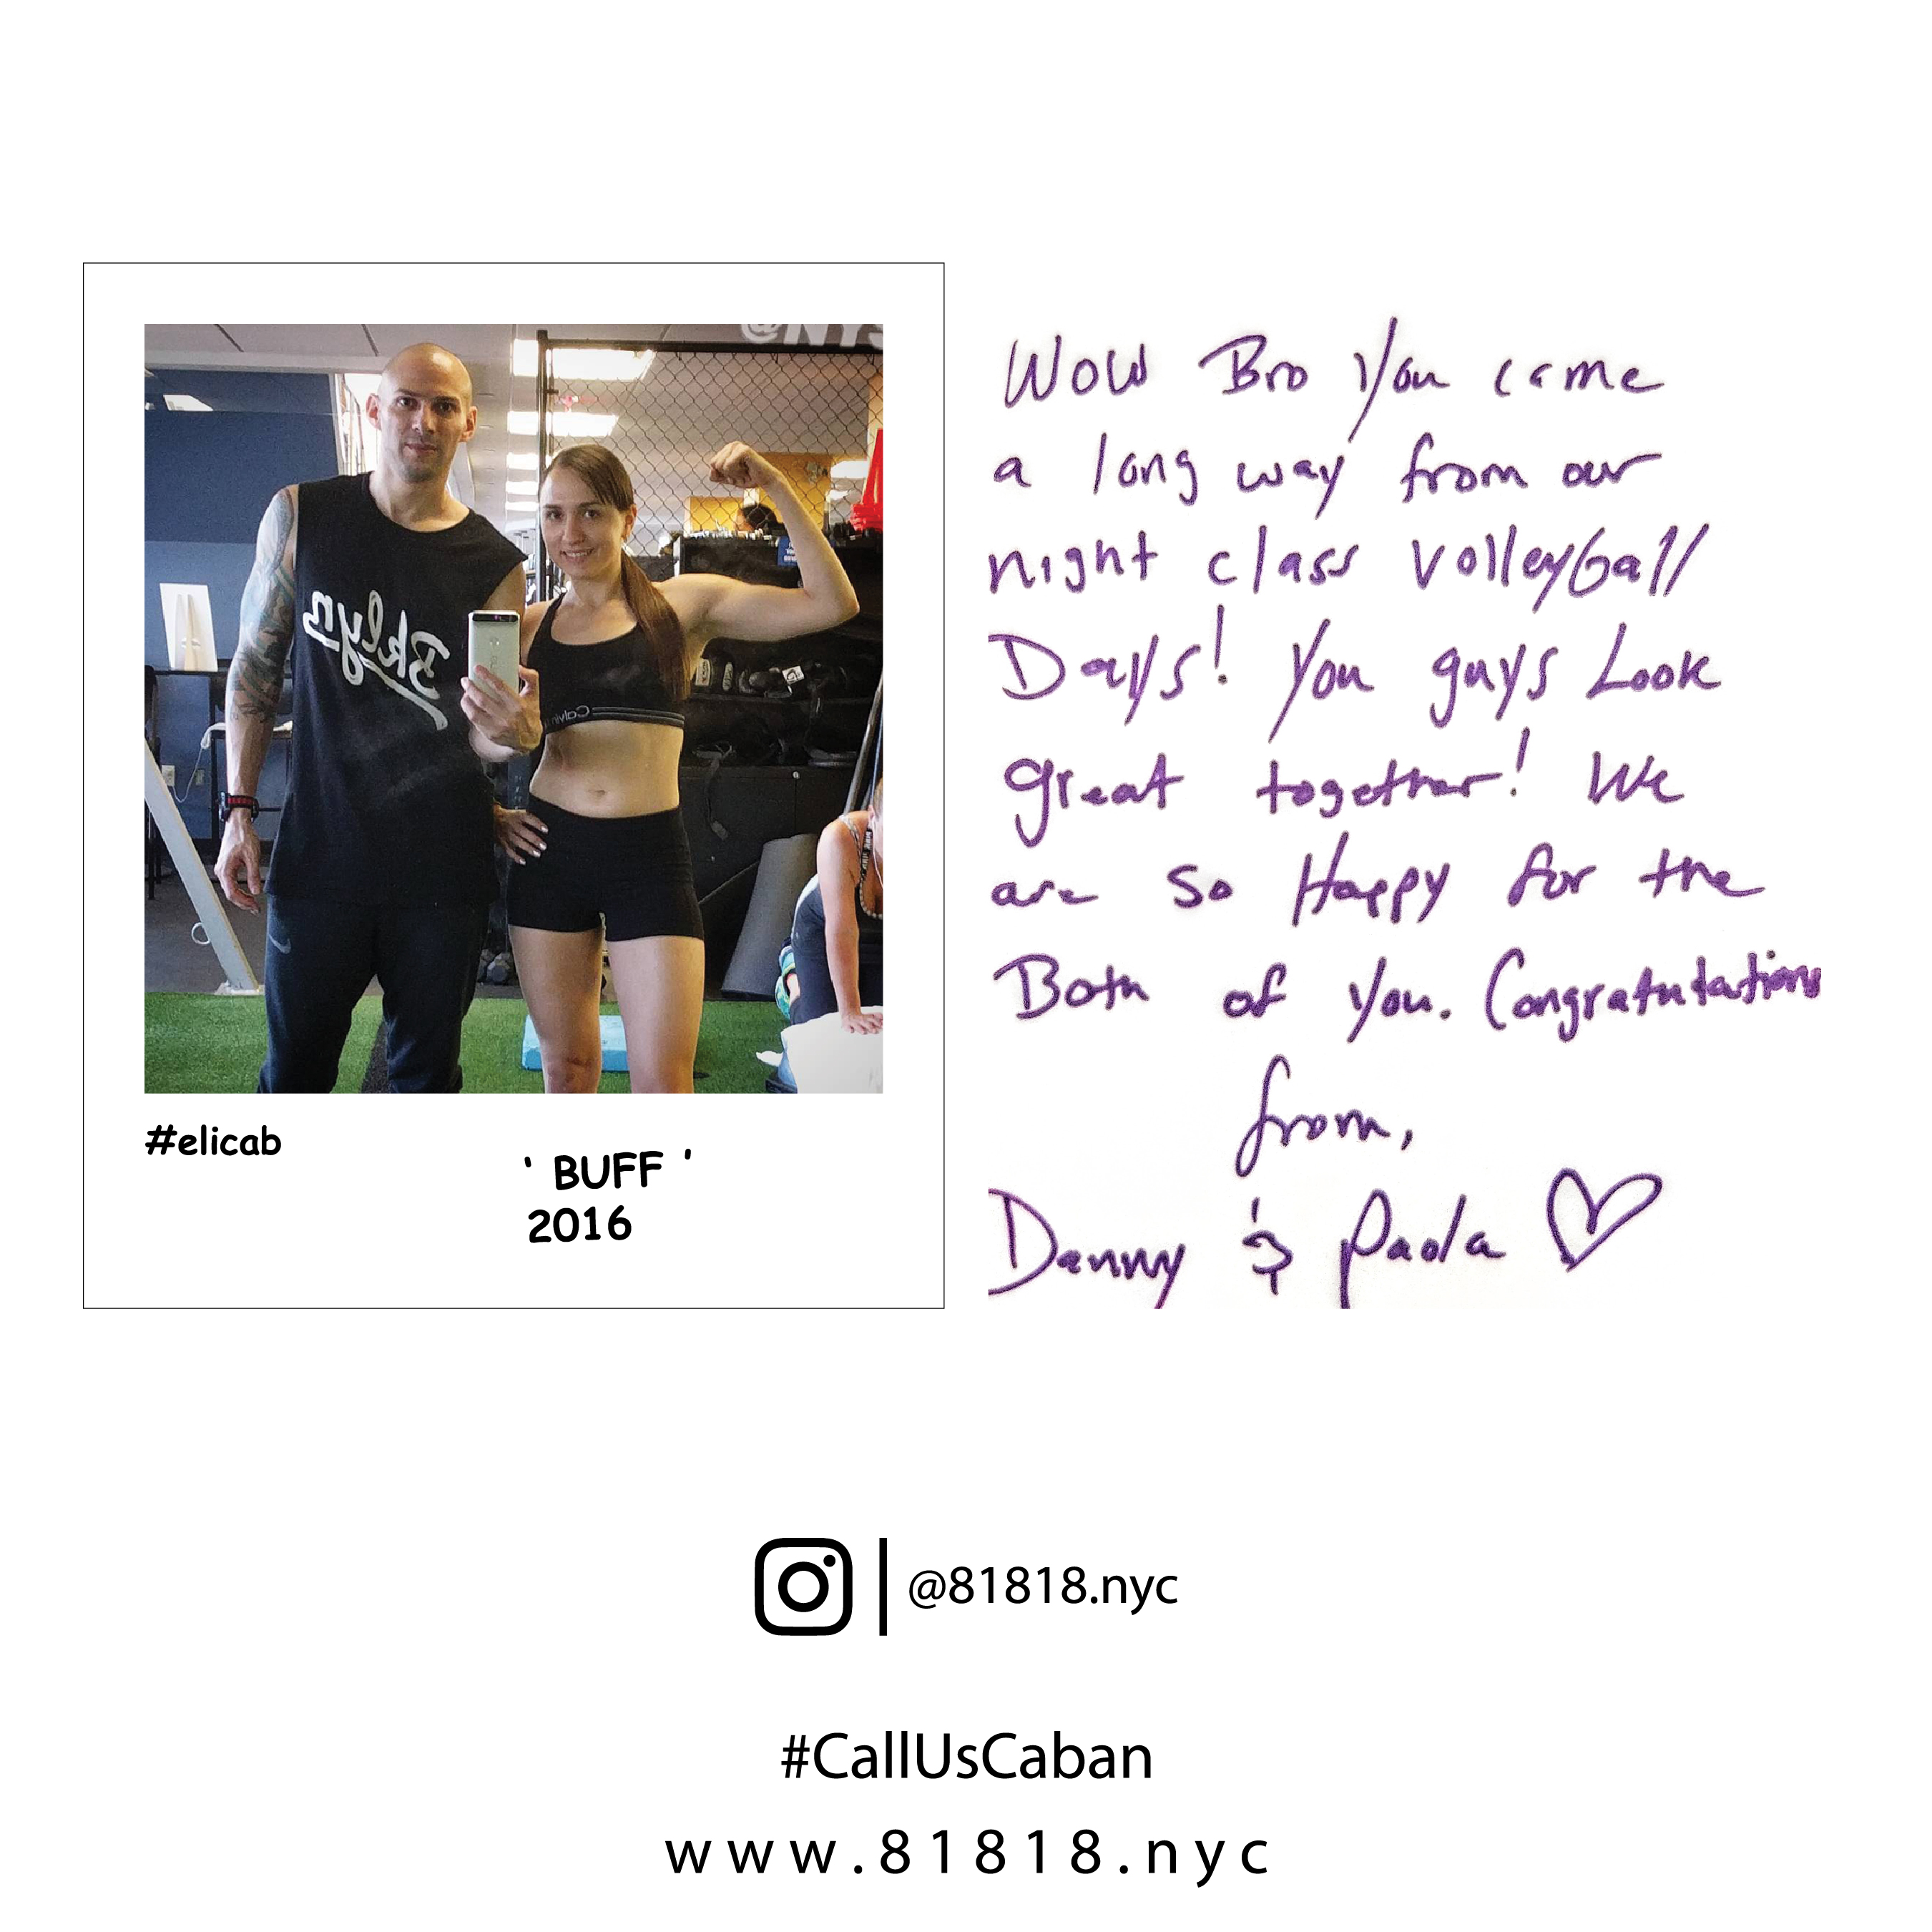 @NYS
Bklyn
Calvin
#elicab
' BUFF '
2016
Wow Bro You came
a long way from our
night class volleyball
Days! You guys Look
great together! We
are so Happy for the
Both of You. Congratulations
from,
Danny & Paola ♡
@81818.nyc
#CallUsCaban
www.81818.nyc